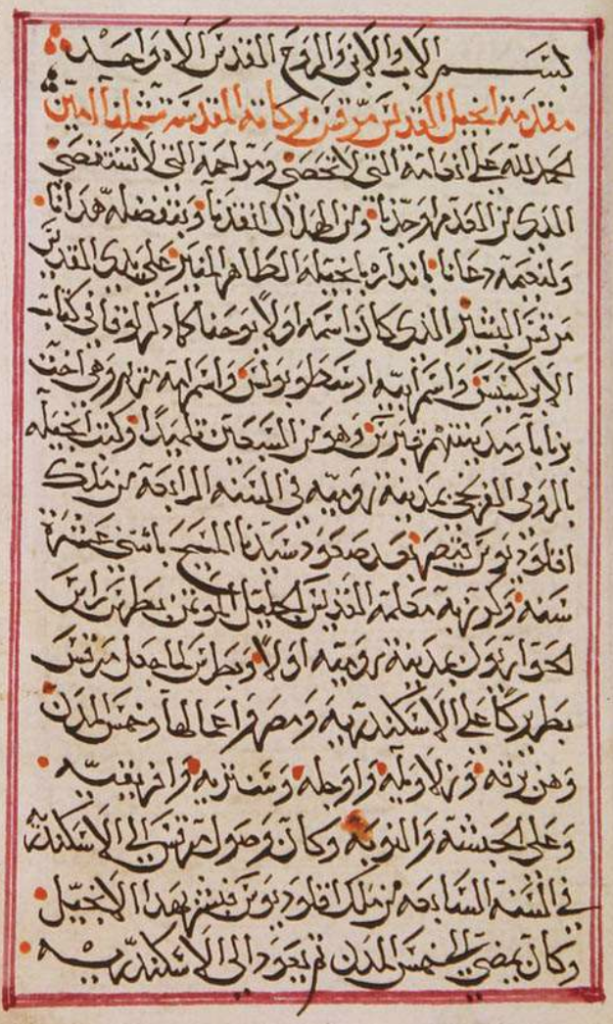 بسم الاب والابن والروح القدس الاه واحد
مقدمة انجيل القديس مرقس بركاته المقدسة تشملنا امين
الحمد لله على انعامه التي لا تحصى ومراحمه التي لا تستقصى
الذي من العدم اوجدنا ومن الهلاك انقذنا وبفضله هدانا
ولنعيمه دعانا بانداره بانجيله الطاهر المقدس على يدي القديس
مرقس البشير الذي كان اسمه اولا يوحنا كما ذكر لوقا في كتاب
الابركسيس واسم ابيه ارسطوبولس واسم امه مريم وهي اخت
برنابا ومدينتهم قبرس وهو من السبعين تلميدا وكتب انجيله
بالرومي الفرنجي بمدينة رومية في السنة الرابعة من ملك
اقلوديوس قيصر بعد صعود سيدنا المسيح باثني عشرة
سنة وكرز به معلمه القديس الجليل المؤتمن بطرس راس
الحواريون بمدينة رومية اولا وبطرس لما جعل مرقس
بطريركا على الاسكندرية ومصر واعمالها وخمس المدن
وهن برقة وزلاويلة واوجلة وسنترية وافريقية
وعلى الحبشة والنوبة وكان وصول مرقس الى الاسكندرية
في السنة السابعة من ملك اقلوديوس فبشر بهذا الانجيل
وكان يمضي الى خمس المدن ثم يعود الى الاسكندرية